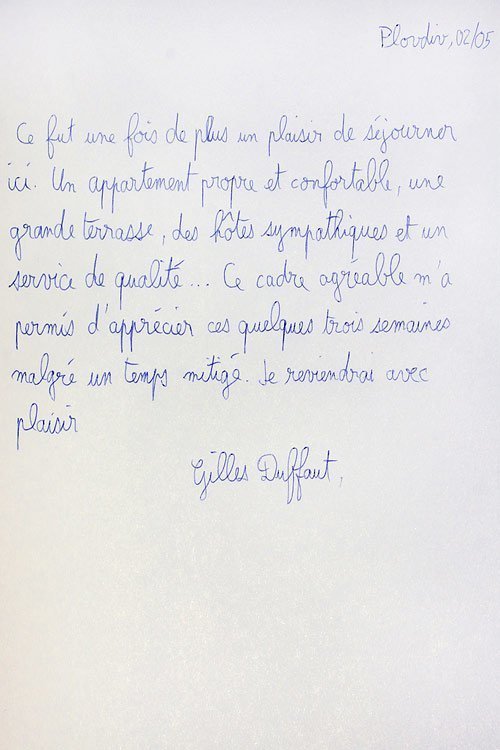 Plovdiv, 02/05
Ce fut une fois de plus un plaisir de séjourner
ici. Un appartement propre et confortable, une
grande terrasse, des hôtes sympathiques et un
service de qualité... Ce cadre agréable m'a
permis d'apprécier ces quelques trois semaines
malgré un temps mitigé. Je reviendrai avec
plaisir
Gilles Duffaut,